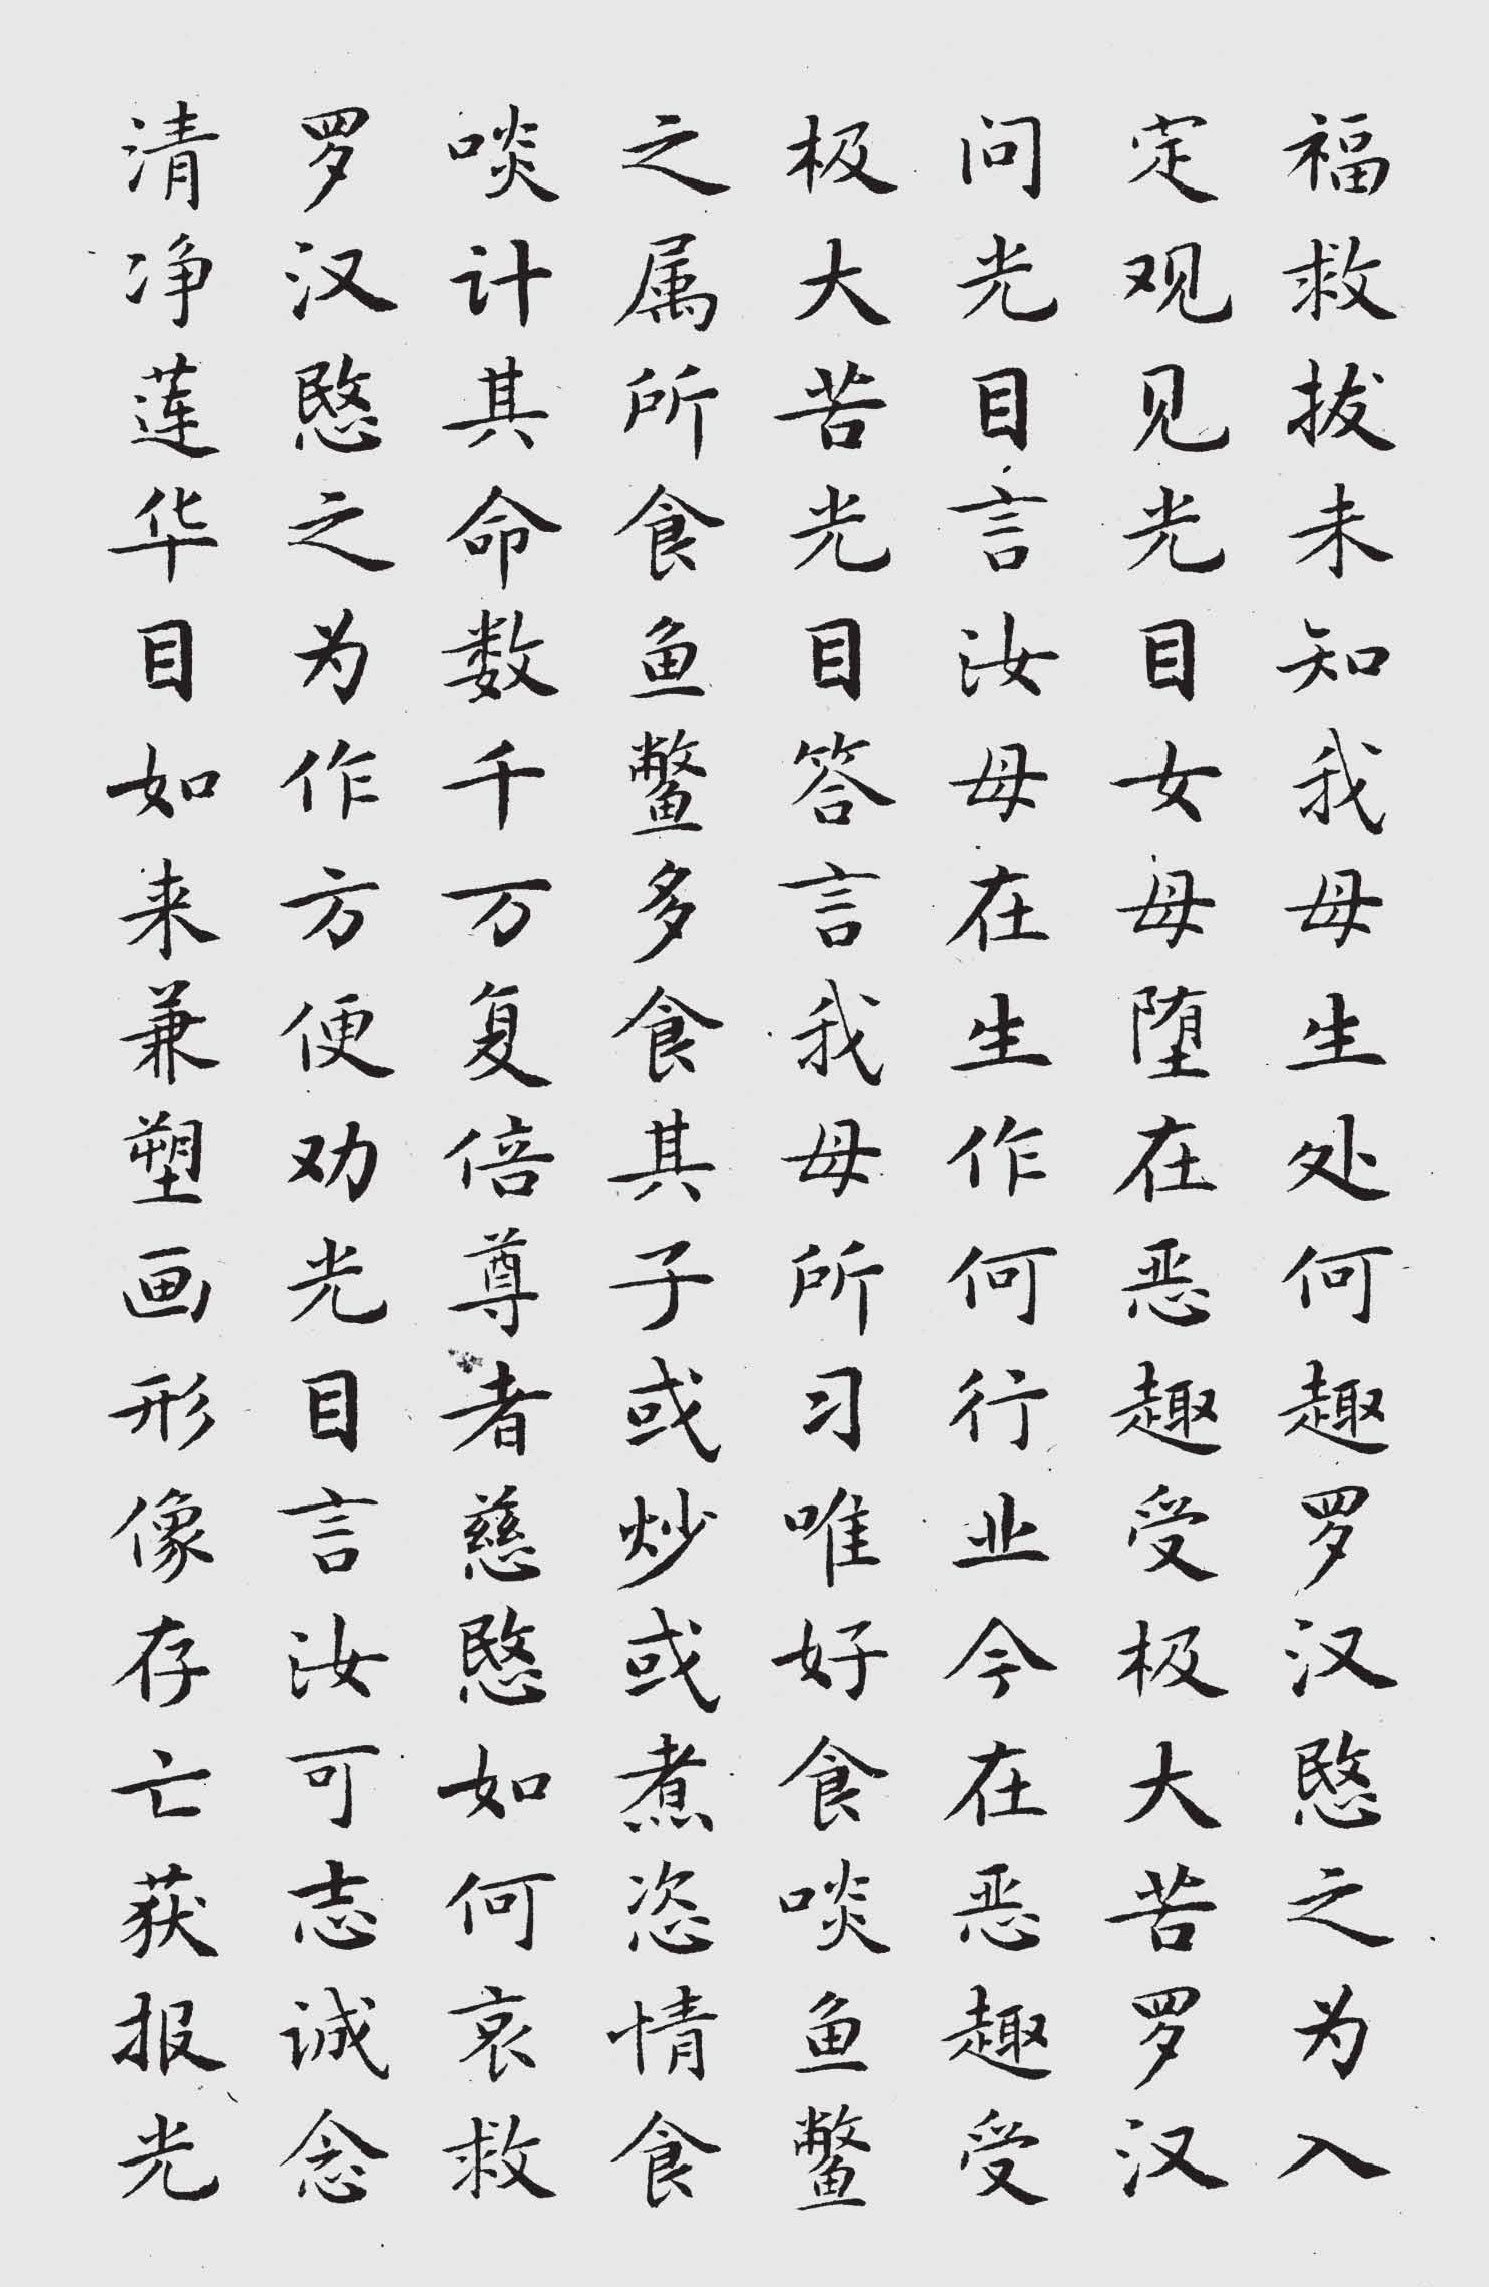 福救拔未知我母生处何趣罗汉愍之为入
定观见光目女母堕在恶趣受极大苦罗汉
问光目言汝母在生作何行业今在恶趣受
极大苦光目答言我母所习唯好食啖鱼鳖
之属所食鱼鳖多食其子或炒或煮恣情食
啖计其命数千万复倍尊者慈愍如何哀救
罗汉愍之为作方便劝光目言汝可志诚念
清净莲华目如来兼塑画形像存亡获报光